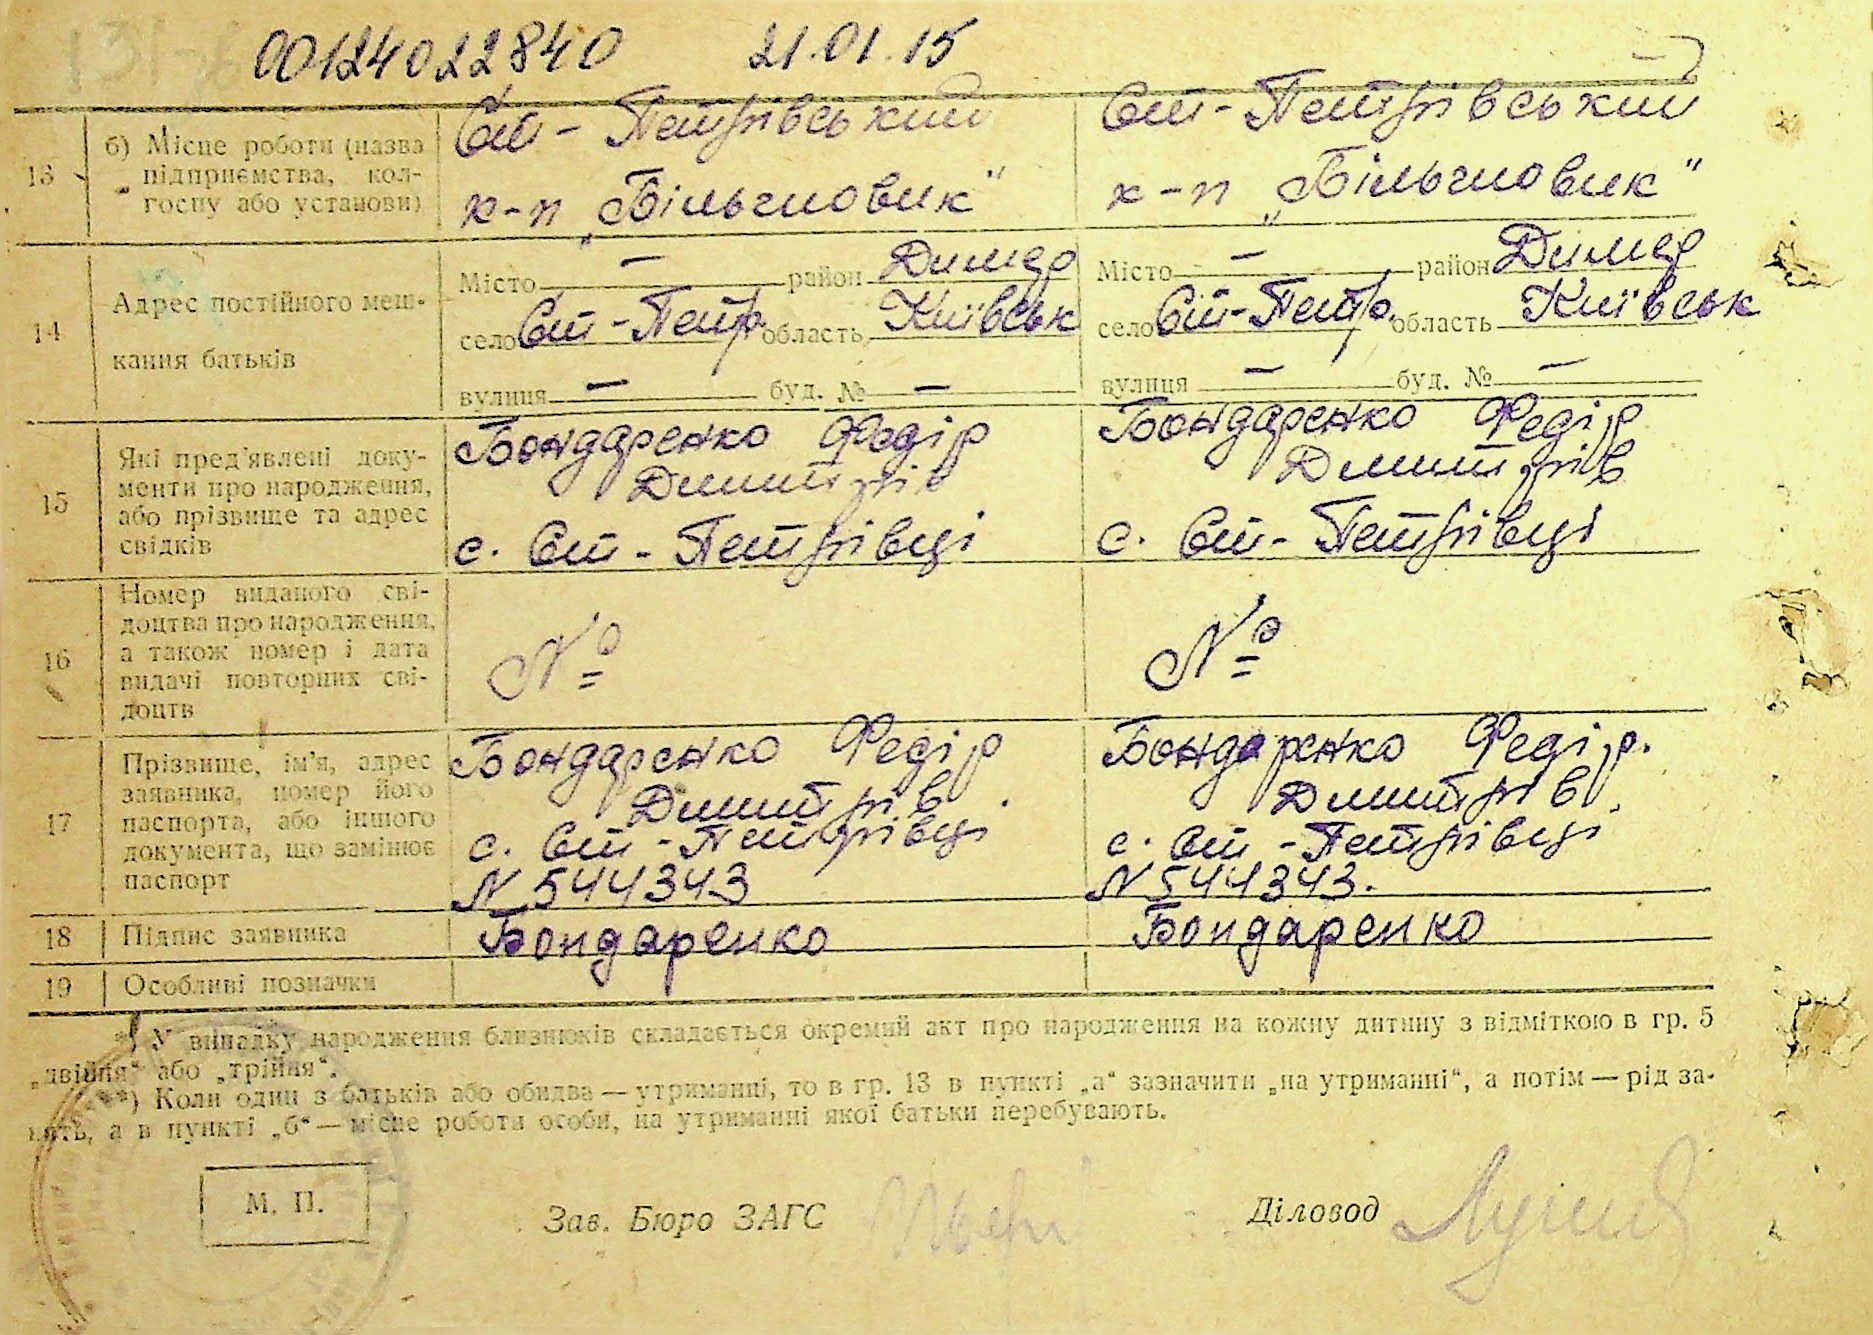 00124022840 21.01.15
13 б) Місце роботи (назва підприємства, колгоспу або установи)
Ст-Петрівський
к-п „Більшовик"
Ст-Петрівський
к-п „Більшовик"
14 Адрес постійного мешкання батьків
Місто — район Димер
село Ст-Петр. область Київськ
вулиця — буд. № —
Місто — район Димер
село Ст-Петр. область Київськ
вулиця — буд. № —
15 Які пред'явлені документи про народження, або прізвище та адрес свідків
Бондаренко Федір
Дмитрів
с. Ст-Петрівці
Бондаренко Федір
Дмитрів
с. Ст-Петрівці
16 Номер виданого свідоцтва про народження, а також номер і дата видачі повторних свідоцтв
№
№
17 Прізвище, ім'я, адрес заявника, номер його паспорта, або іншого документа, що замінює паспорт
Бондаренко Федір
Дмитрів
с. Ст-Петрівці
N 544343
Бондаренко Федір.
Дмитрів
с. Ст-Петрівці
N 544343.
18 Підпис заявника
Бондаренко
Бондаренко
19 Особливі позначки
*) У випадку народження близнюків складається окремий акт про народження на кожну дитину з відміткою в гр. 5
„двійня" або „трійня".
**) Коли один з батьків або обидва — утриманці, то в гр. 13 в пункті „а" зазначити „на утриманні", а потім — рід за-
нять, а в пункті „б" — місце роботи особи, на утриманні якої батьки перебувають.
М. П.
Зав. Бюро ЗАГС
Діловод